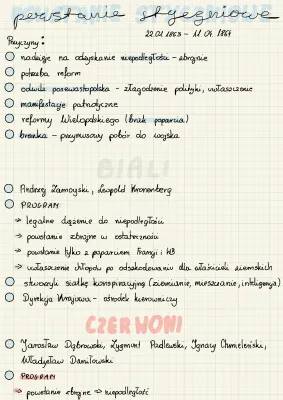 powstanie styczniowe
22.01.1863 - 11.04.1864
Przyczyny:
nadzieje na odzyskanie niepodległości - zbrojne
potrzeba reform
odwilż posewastopolska - złagodzenie polityki, uwłaszczenie
manifestacje patriotyczne
reformy Wielopolskiego (brak poparcia)
branka - przymusowy pobór do wojska
BIALI
Andrzej Zamoyski, Leopold Kronenberg
PROGRAM
⇒ legalne dążenie do niepodległości
⇒ powstanie zbrojne w ostateczności
⇒ powstanie tylko z poparciem Francji i WB
⇒ uwłaszczenie chłopów po odszkodowaniu dla właścicieli ziemskich
stworzyli siatkę konspiracyjną (ziemianie, mieszczanie, inteligencja)
Dyrekcja Krajowa - ośrodek kierowniczy
CZERWONI
Jarosław Dąbrowski, Zygmunt Padlewski, Ignacy Chmieleński,
Władysław Daniłowski
PROGRAM
⇒ powstanie zbrojne ⇒ niepodległość